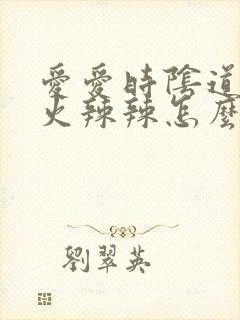 愛愛時陰道
火辣辣怎麼
劉翠英